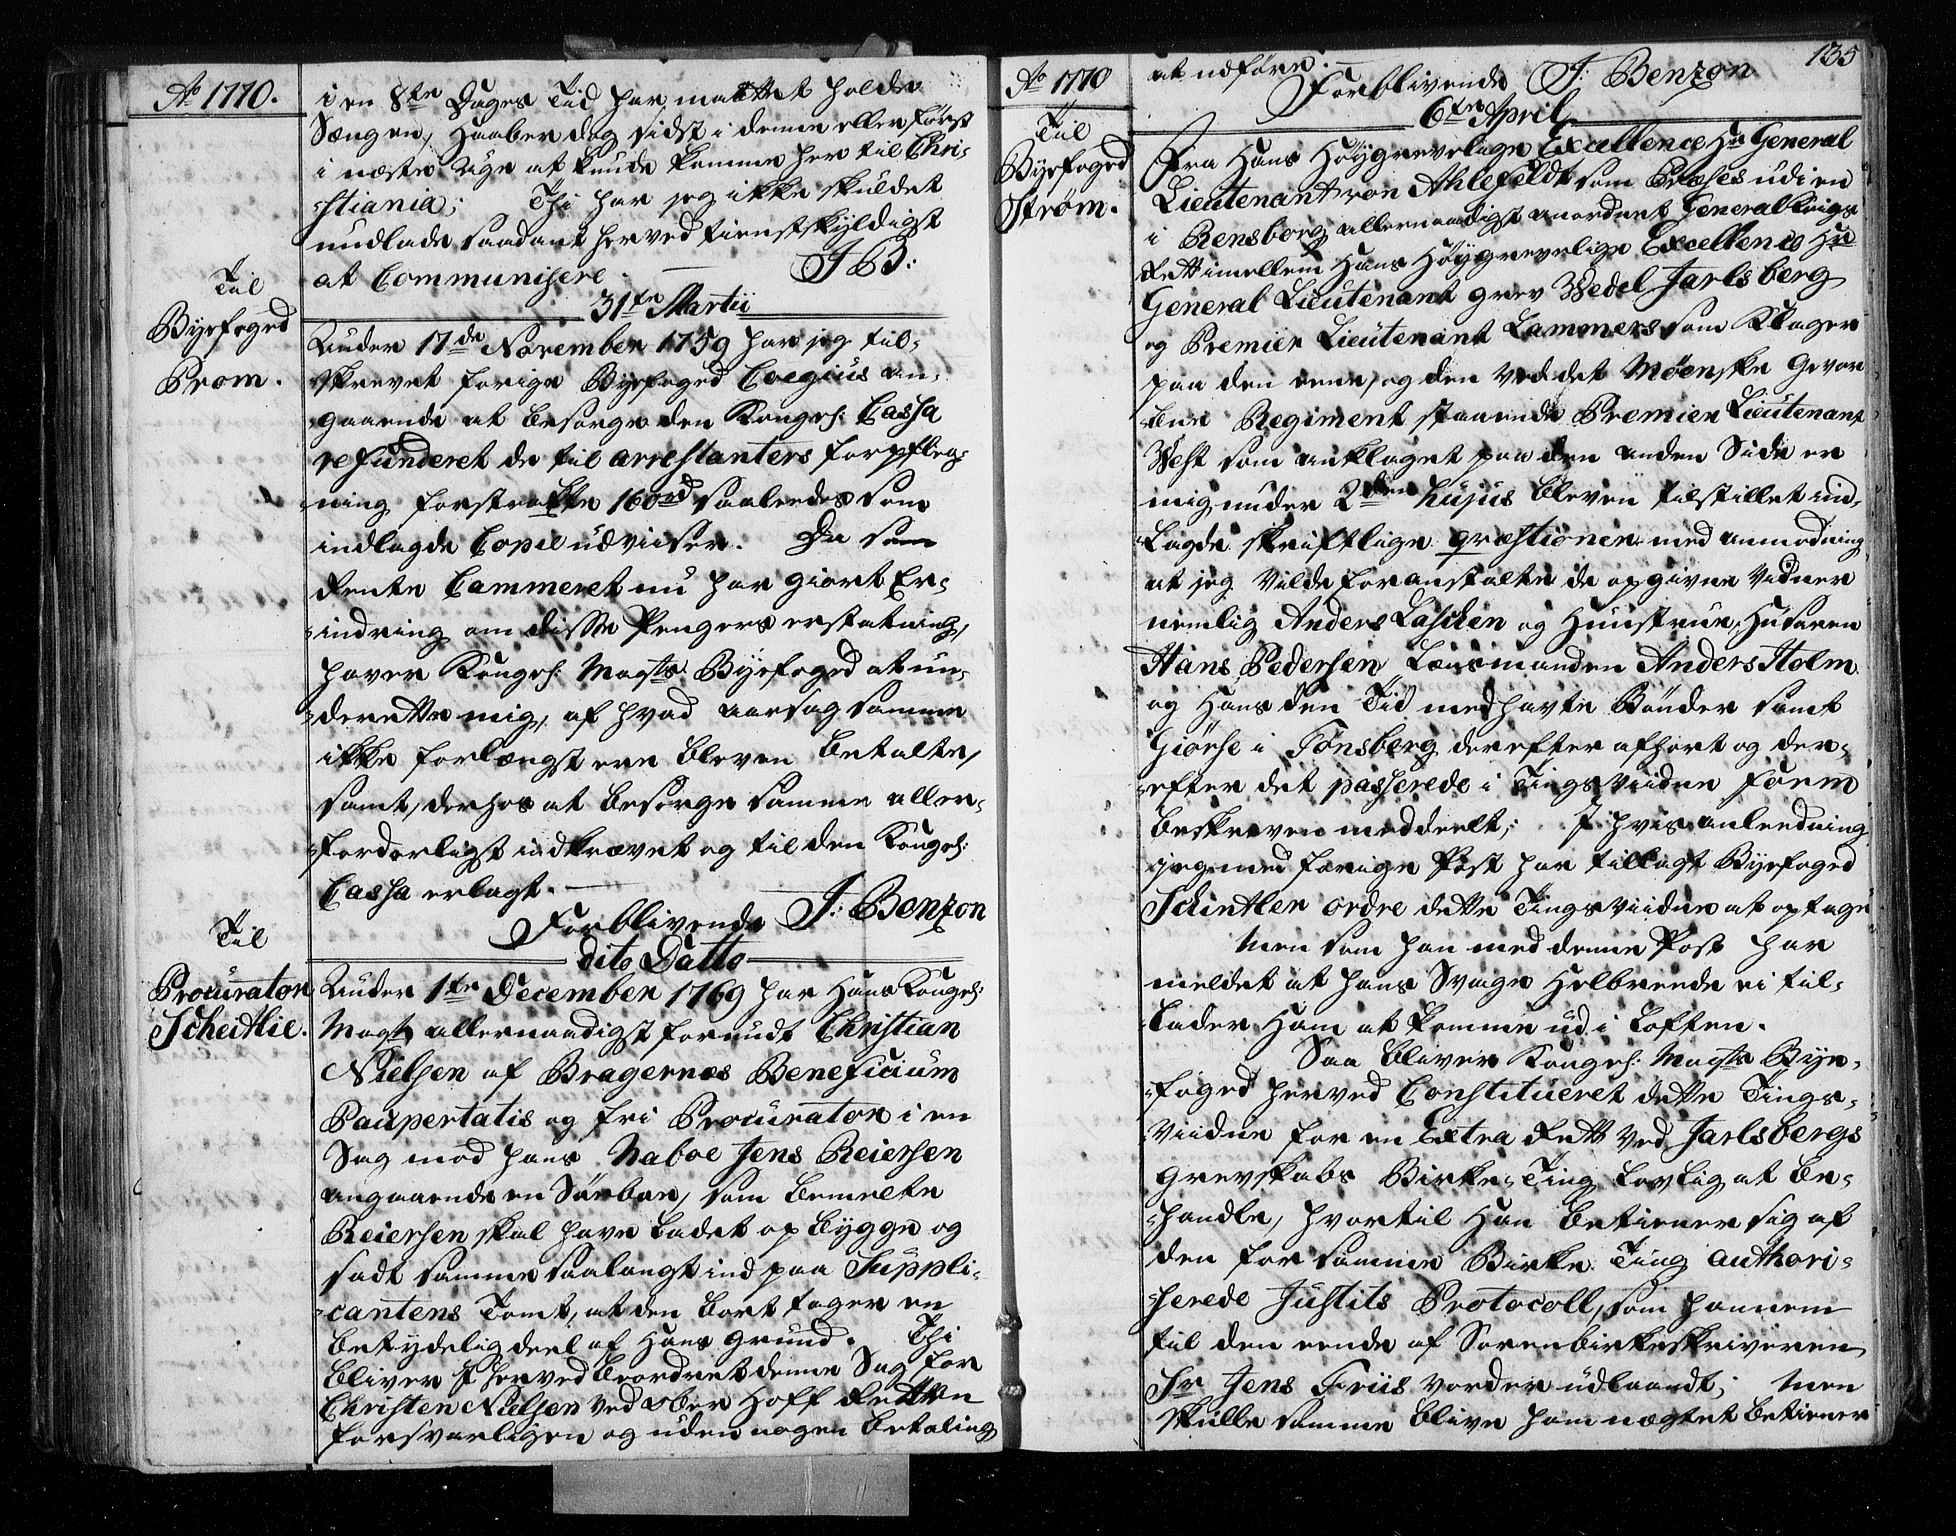 Ao 1770.
i en 8te Dages Tid har maattet holde
Sængen, haaber dog sidst i denne eller først
i næste Uge at kunde komme her til Chri-
stiania; Thi har jeg ikke skuldet
undlade saadant herved tienstskyldigst
at Communisere. J B:
31te Martii
Til
Byefoged
Prom.
Under 17de November 1759 har jeg til-
skrevet forige Byefoged Coegius an-
gaaende at besørge den Kongel: Cassa
refunderet de til arrestanters forpfleg-
ning forstrakte 160rd saaledes som
indlagde Copie udviiser. Da som
Rente Cammeret nu har giort Er-
indring om disse Pengers erstatning,
haver Kongel: Mayts Byefoged at un-
derrette mig, af hvad aarsag samme
ikke forlængst ere bleven betalte,
samt, derhos at besørge samme aller-
forderligst indkrævet og til den Kongel:
Cassa erlagt.
Forblivende J: Benzon
dito Datto
Til
Procurator
Scheitlie.
Under 1te December 1769 har Hans Kongel:
Mayt allernaadigst forundt Christian
Nielsen af Bragernæs Beneficium
Paupertatis og fri Procurator i en
Sag mod hans Naboe Jens Reiersen
angaaende en Siøeboe, som bemelte
Reiersen skal have ladet op bygge og
sadt samme saalangt ind paa Suppli-
cantens Tomt, at den bort tager en
betydelig deel af Hans grund. Thi
bliver I herved beordret denne Sag for
Christen Nielsen ved ober Hoff Retten
forsvarligen og uden nogen betaling
135
Ao 1770
at udføre.
Forblivende J: Benzon
6te April
Til
Byefoged
Strøm.
Fra Hans Høygrevelige Excellence Hr General
Lieutenant von Ahlefeldt som Præses udi en
i Rensborg allernaadigst anordnet General krigs
Rett imellem Hans Høygrevelige Excellence Hr
General Lieutenant grev Wedel Jarlsberg
og Premier Lieutenant Lammers som Klager
paa den eene, og den ved det Møenske Gevor-
bne Regiment staaende Premier Lieutenant
West som anklaget paa den anden Side er
mig under 2den hujus bleven tilstillet ind-
lagde skriftlige qræstioner med anmodning
at jeg vilde foranstalte de opgivne vidner
nemlig Anders Laschen og Huustrue, Husaren
Hans Pedersen Lænsmanden Anders Holm
og Hans den Tid medhavte Bønder samt
Giørse i Tønsberg derefter afhørt og der-
efter det passerede i Tingsviidne form
beskreven meddeelt; I hvis anleedning
jeg med forige Post har tillagt Byefoged
Schintler ordre dette Tingsviidne at optage
Men som han med denne Post har
meldet at hans Svage Helbreede ei til-
lader Ham at komme ud i Loften.
Saa bliver Kongel: Mayts Bye-
foged herved Constitueret dette Tings-
viidne for en Extra Rett ved Jarlsbergs
Grevskabs Birke-Ting lovlig at be-
handle, hvortil Han betiener sig af
den for samme Birke Ting authori-
serede Justits Protocoll, som hannem
til den eende af Sorenbirkeskriveren
Sr Jens Friis vorder udlaandt; Men
skulle samme blive ham nægtet betiener